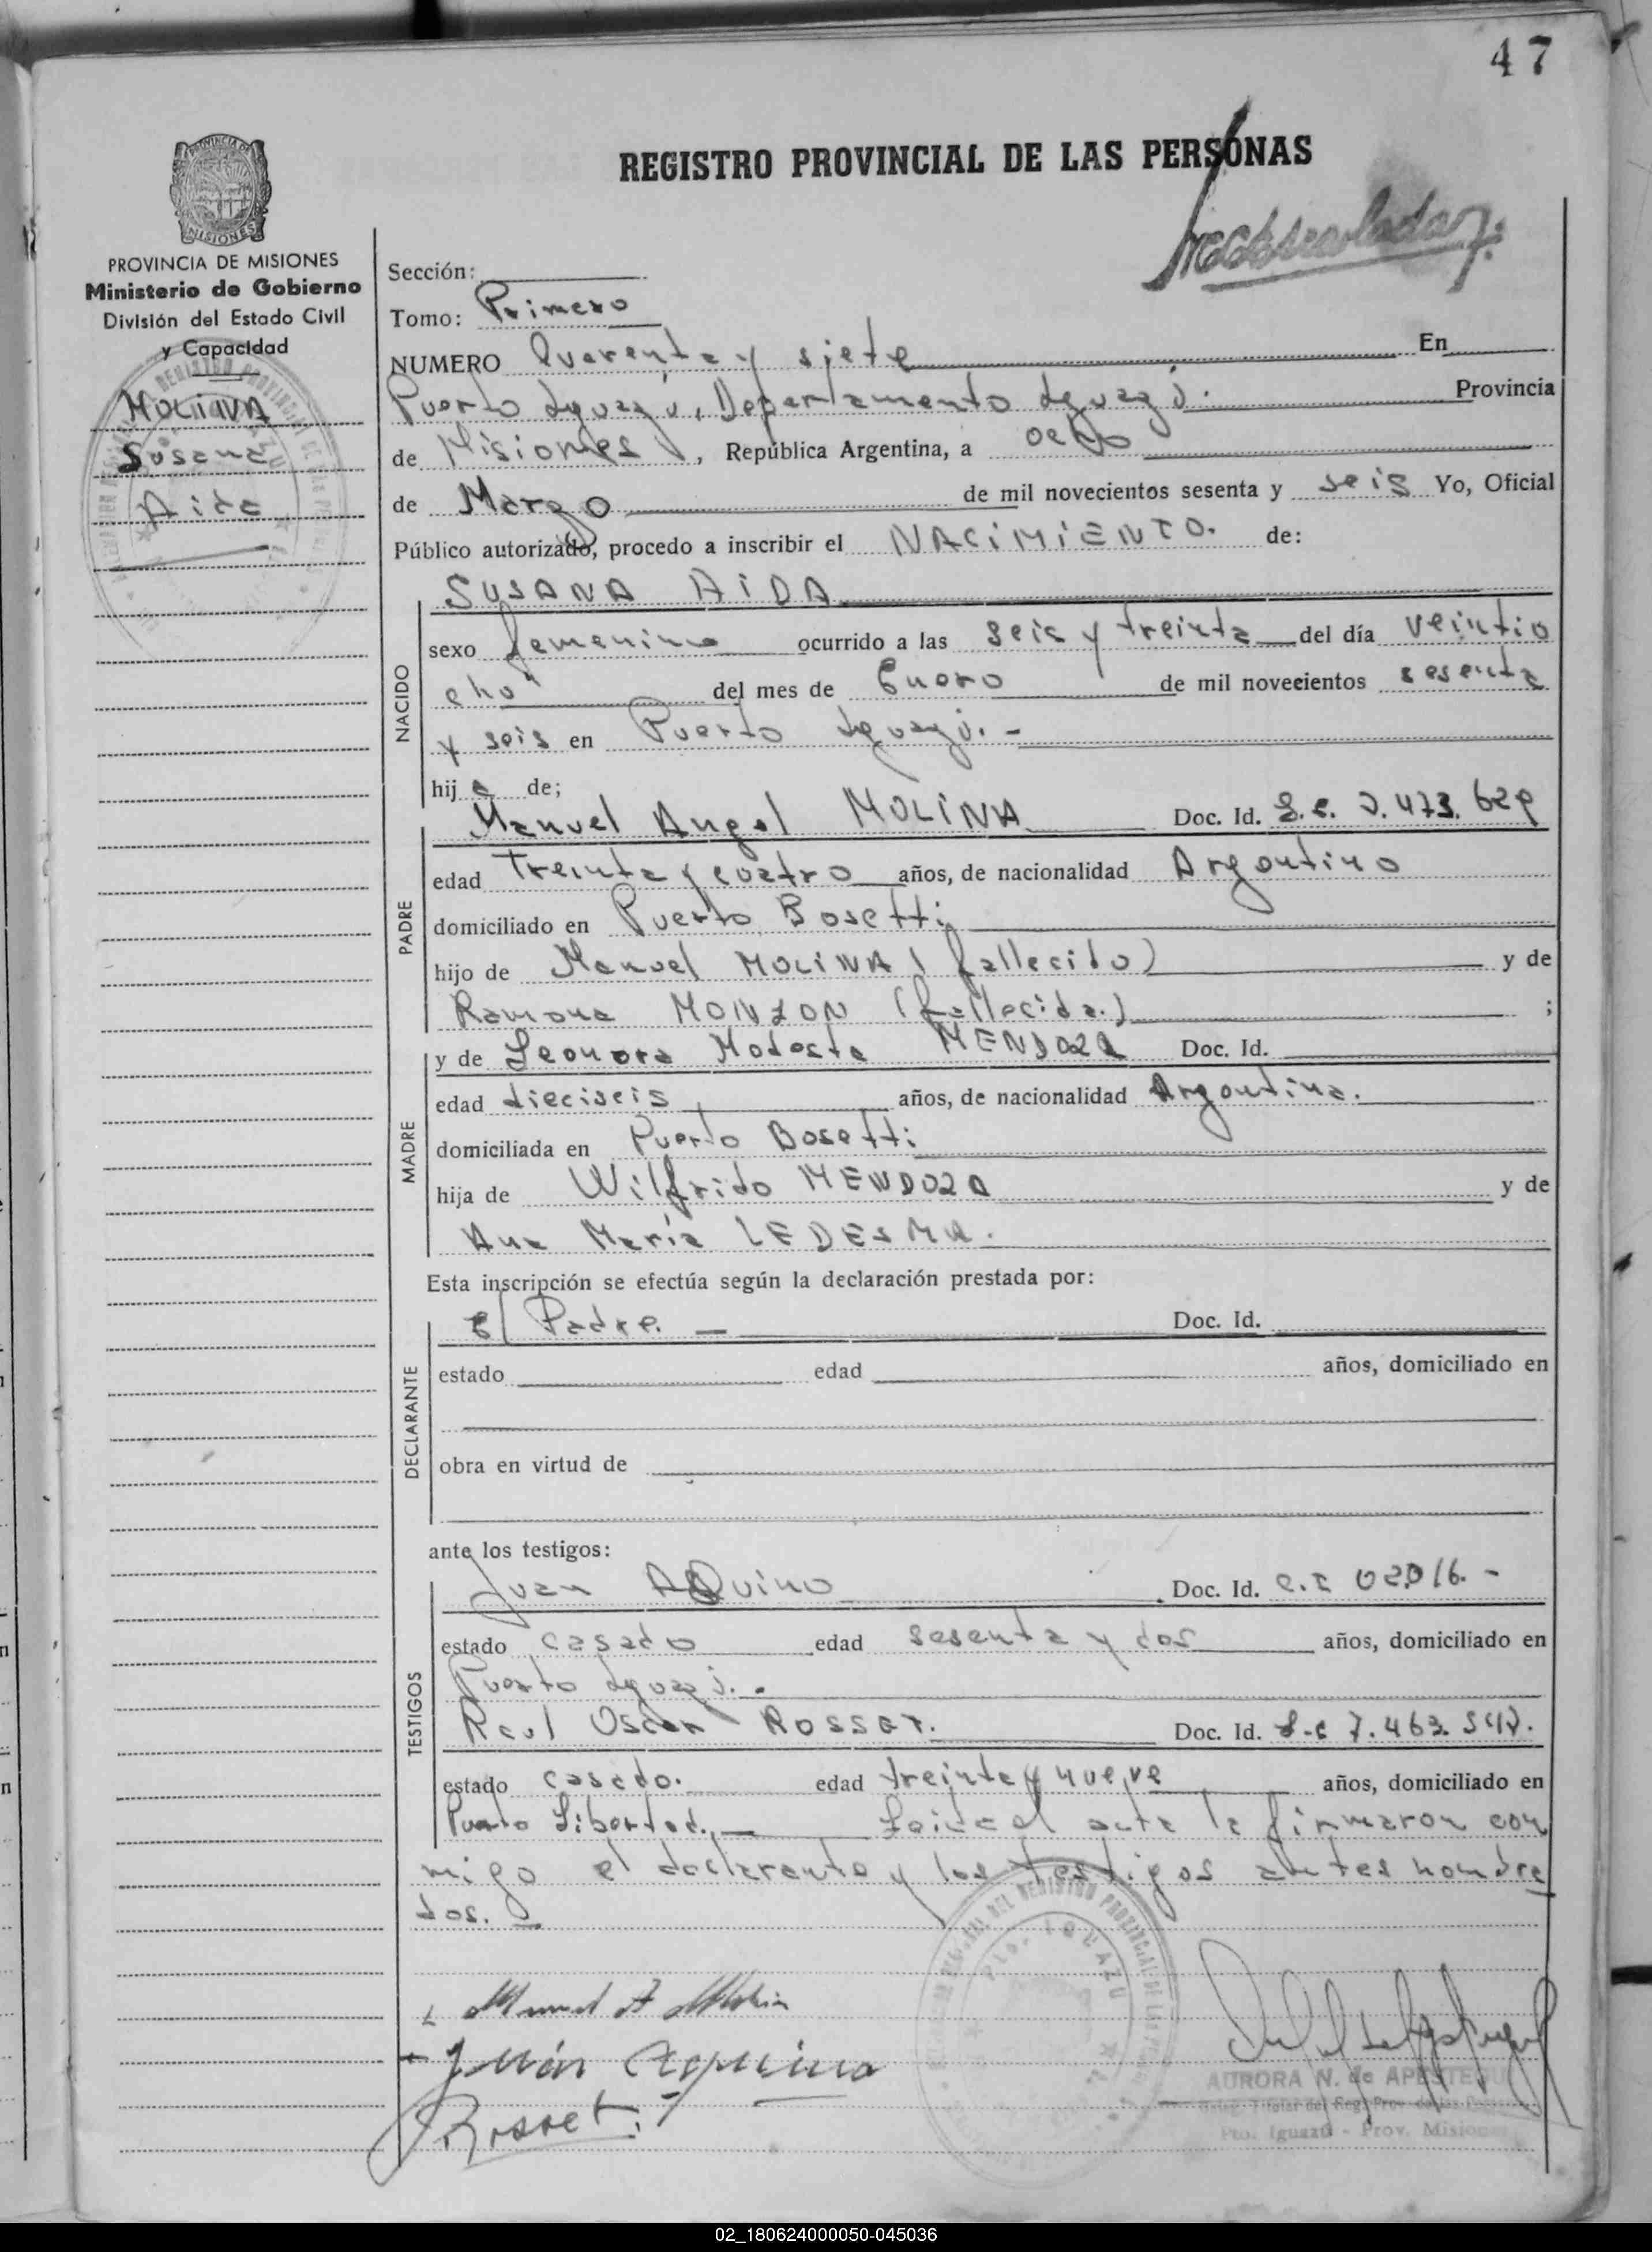 47
REGISTRO PROVINCIAL DE LAS PERSONAS
PROVINCIA DE MISIONES
MISIONES
PROVINCIA DE MISIONES
Ministerio de Gobierno
División del Estado Civil
y Capacidad
MOLINA
Susana
Aida
Sección:
Tomo: Primero
NUMERO Quarenta y siete En
Puerto Iguazú, Departamento Iguazú. Provincia
de Misiones, República Argentina, a ocho
de Marzo de mil novecientos sesenta y seis Yo, Oficial
Público autorizado, procedo a inscribir el NACIMIENTO. de:
SUSANA AIDA
NACIDO
sexo femenino ocurrido a las seis y treinta del día veintio
cho del mes de Enero de mil novecientos sesenta
y seis en Puerto Iguazú. -
hija de;
PADRE
Manuel Angel MOLINA Doc. Id. 7.473.629
edad treinta y cuatro años, de nacionalidad Argentino
domiciliado en Puerto Bosetti
hijo de Manuel MOLINA (fallecido) y de
Ramona MONZON (fallecida.) ;
MADRE
y de Leonora Modesta MENDOZA Doc. Id.
edad dieciseis años, de nacionalidad Argentina.
domiciliada en Puerto Bosetti
hija de Wilfrido MENDOZA y de
Ana María LEDESMA.
Esta inscripción se efectúa según la declaración prestada por:
DECLARANTE
El Padre. — Doc. Id.
estado edad años, domiciliado en
obra en virtud de
ante los testigos:
TESTIGOS
Juan AQuino Doc. Id. C.I 02016. -
estado casado edad sesenta y dos años, domiciliado en
Puerto Iguazú. -
Raul Oscar ROSSET. Doc. Id. 7.463.
estado casado. edad treinta y nueve años, domiciliado en
Puerto Libertad. — Leida el acta la firmaron con
migo el declarante y los testigos antes nombra
dos. —
Manuel A Molina
Juán Aquino
Rosset.
PTO. IGUAZU
AURORA N. de APESTEGUI
Pto. Iguazú - Prov. Misiones
02_180624000050-045036